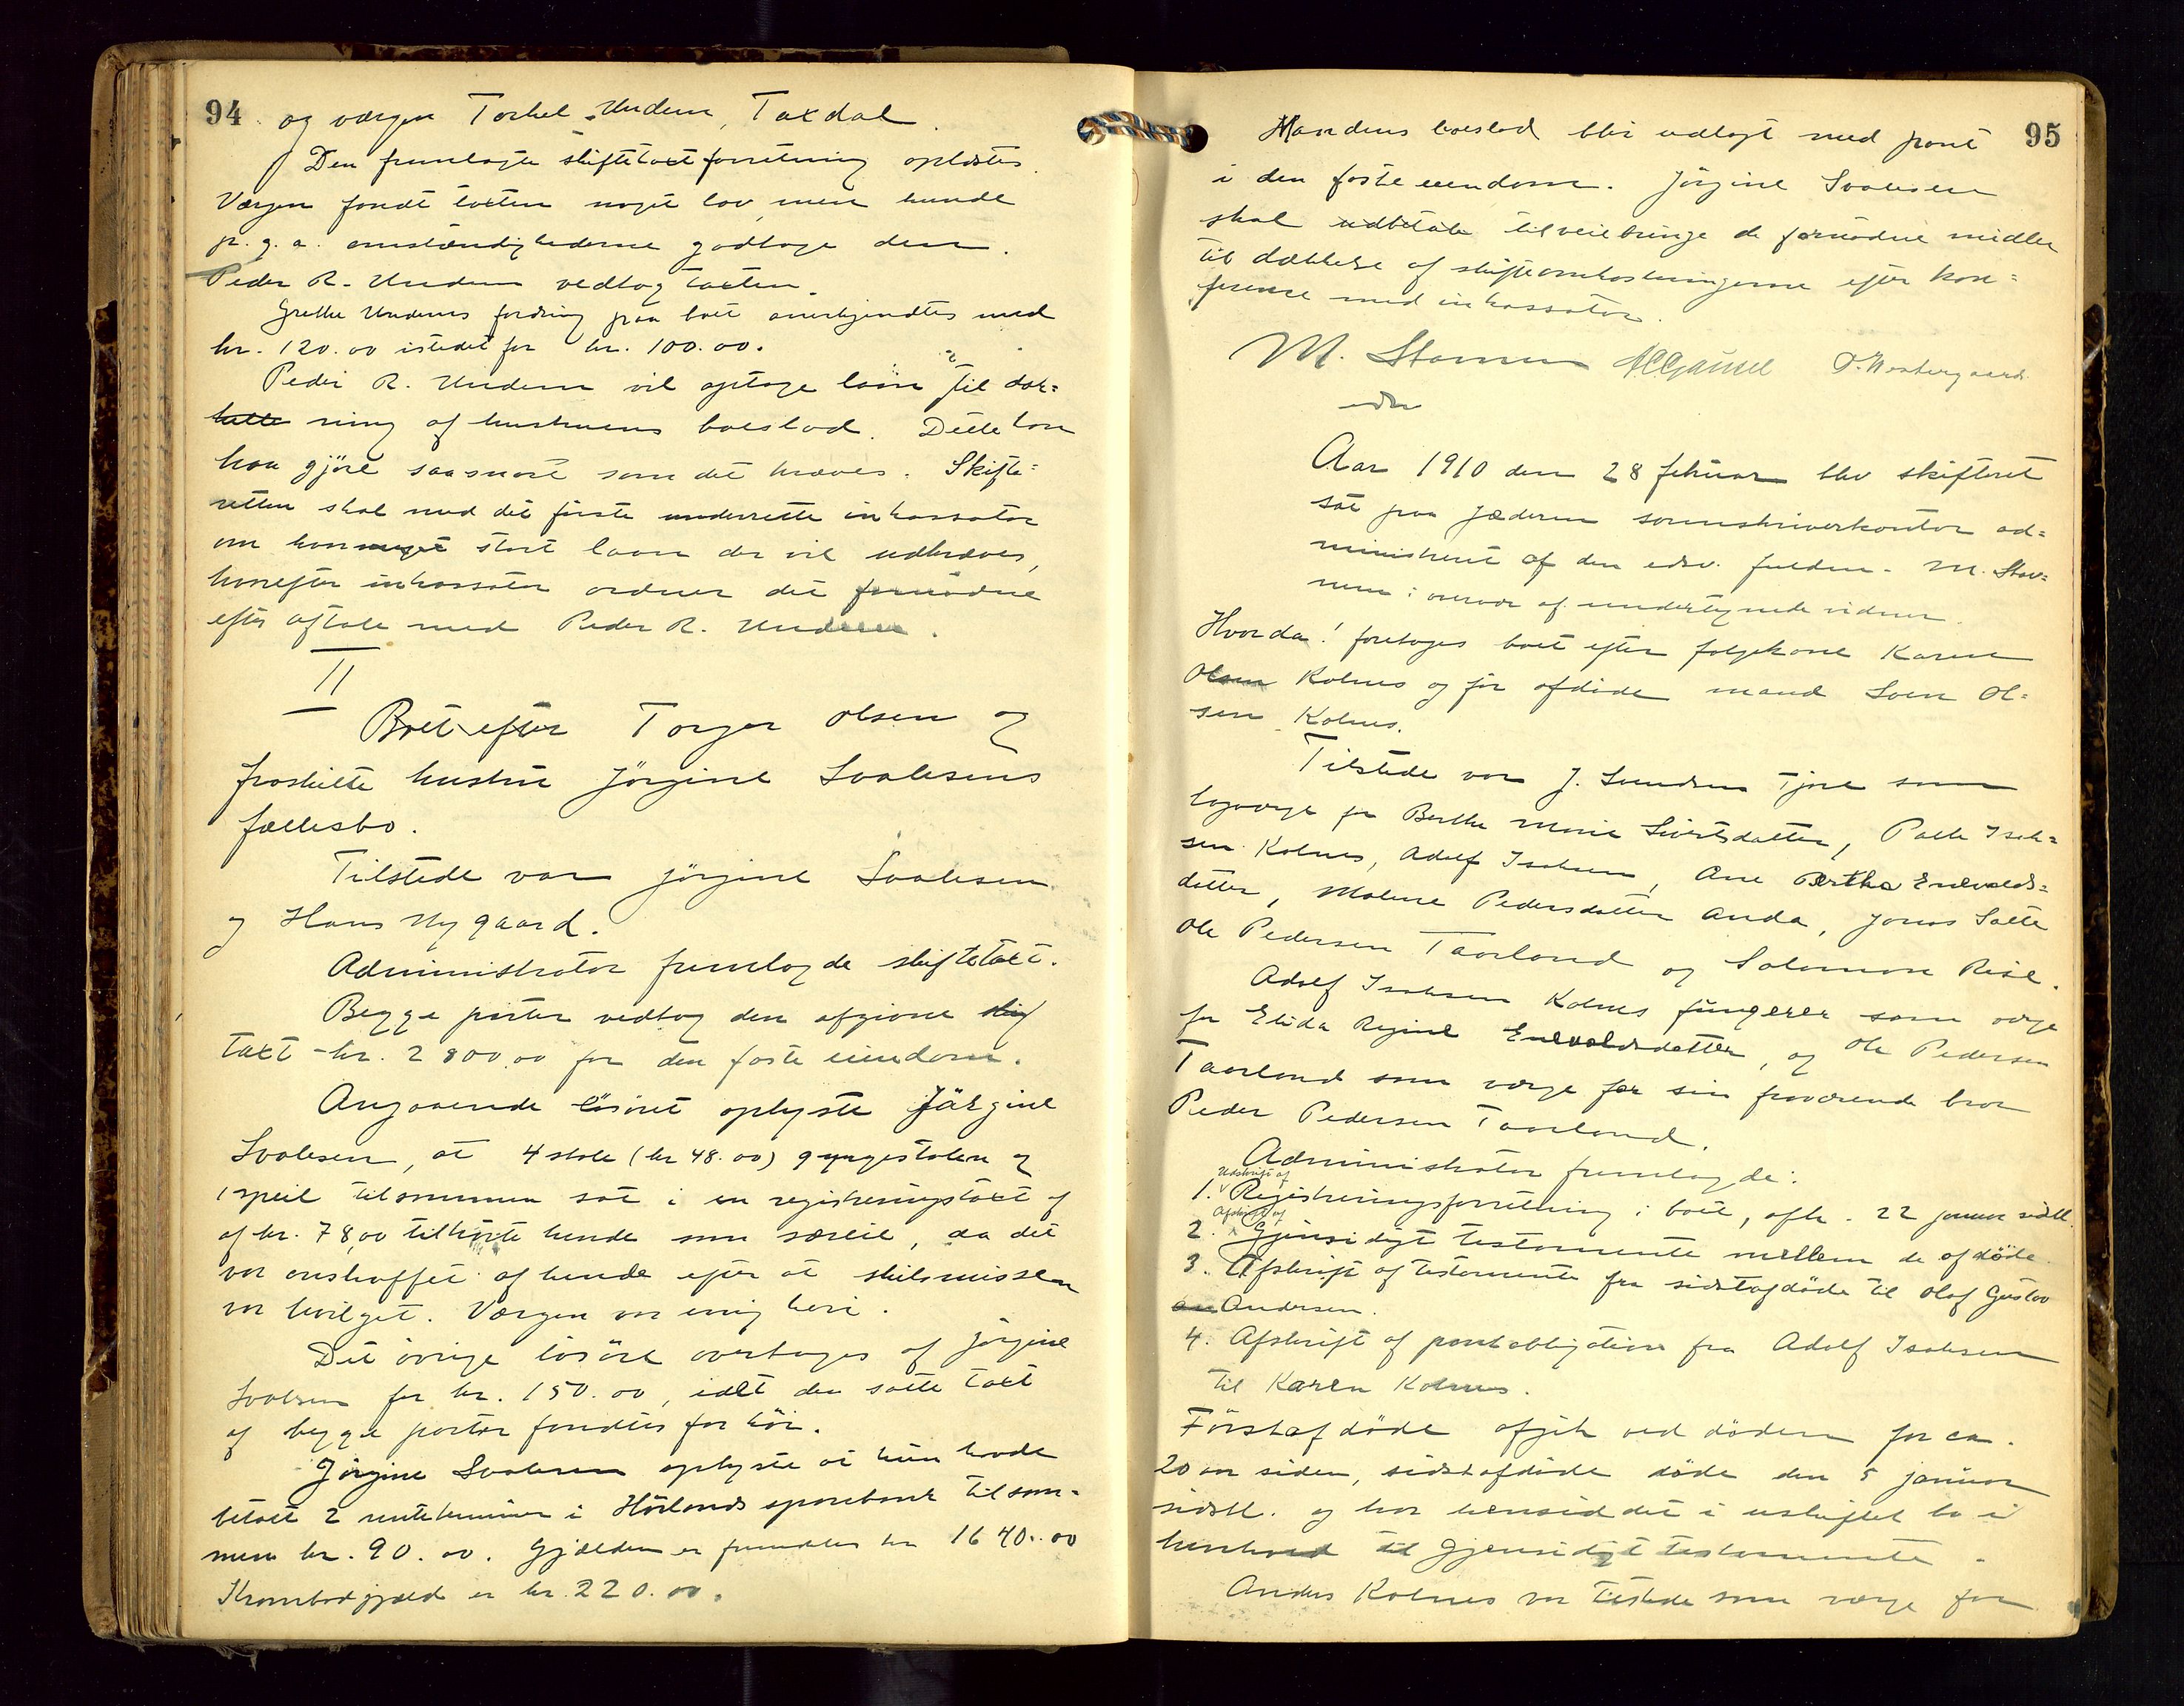 94
og værgen Torkel Undem, Taxdal.
Den fremlagte skiftetaxtforretning oplæstes.
Værgen fandt taxten noget lav, men kunde
p. g. a. omstændighederne godtage den.
Peder R. Undem vedtog taxten.
Grethe Undems fordring paa boet anerkjendtes med
kr. 120.00 istedet for kr. 100.00.
Peder R. Undem vil optage laan til dæk=
ning af hustruens boeslod. Dette kan
han gjöre saasnart som det kræves. Skifte=
retten skal med det förste underrette inkassator
om hvor stort laan der vil udkræves,
hvorefter inkassator ordner det fornödne
efter aftale med Peder R. Undem.
II
Boet efter Torger Olsen og
fraskilte hustru Jörgine Svalesens
fællesbo.
Tilstede var Jörgine Svalesen
og Hans Nygaard.
Administrator fremlagde skiftetaxt.
Begge parter vedtog den afgivne
taxt - kr. 2800.00 for den faste eiendom.
Angaaende lösöret oplyste Jörgine
Svalesen, at 4 stole (kr 48.00) gyngestolen og
1 speil tilsammen sat i en registreringstaxt af
af kr. 78,00 tilhörte hende som særeie, da det
var anskaffet af hende efter at skilsmissen
var bevilget. Værgen var enig heri.
Det övrige lösöre overtages af Jörgine
Svalesen for kr. 150.00, idet den satte taxt
af begge parter fandtes for höi.
Jörgine Svalesen oplyste at hun havde
betalt 2 renteterminer i Hölands sparebank tilsam=
men kr. 90.00. Gjælden er fremdeles kr 1640.00
Krambodgjæld er kr. 220.00.
95
Mandens boeslod blir udlagt med pant
i den faste eiendom. Jörgine Svalesen
skal udbetale tilveiebringe de fornödne midler
til dækkelse af skifteomkostningerne efter kon=
ferense med inkassator.
M. Stamnem A C Gausel P. Westergaard
edsv
Aar 1910 den 28 februar blev skifteret
sat paa Jæderen sorenskriverkontor ad=
ministreret af den edsv. fuldm. M. Stav=
nem i overvær af undertegnede vidner.
Hvorda! foretages boet efter folgekone Karen
Olsen Kolnes og för afdöde mand Sven Ol=
sen Kolnes.
Tilstede var J. Svendsen Tjore som
lagværge for Berthe Marie Sivertsdatter, Palle Isak=
sen Kolnes, Adolf Isaksen, Ane Bertha Enevolds=
datter, Malene Pedersdatter Anda, Jonas Salte
Ole Pedersen Taarland og Salomon Rise.
Adolf Isaksen Kolnes fungerer som værge
for Elida Regine Enevoldsdatter, og Ole Pedersen
Taarland som værge for sin fraværende bror
Peder Pedersen Taarland.
Administrator fremlagde:
1. Udskrift af Registreringsforretning i boet, afh. 22 januar sidstl.
2. Afskrift af Gjensidigt testamente mellem de afdöde
3. Afskrift af testamente fra sidstafdöde til Olaf Gustav
Andersen.
4. Afskrift af pantobligation fra Adolf Isaksen
til Karen Kolnes.
Förstafdöde afgik ved döden for ca.
20 aar siden, sidstafdöde döde den 5 januar
sidstl. og har hensiddet i uskiftet bo i
henhold til gjensidigt testamente.
Anders Kolnes var tilstede som værge for